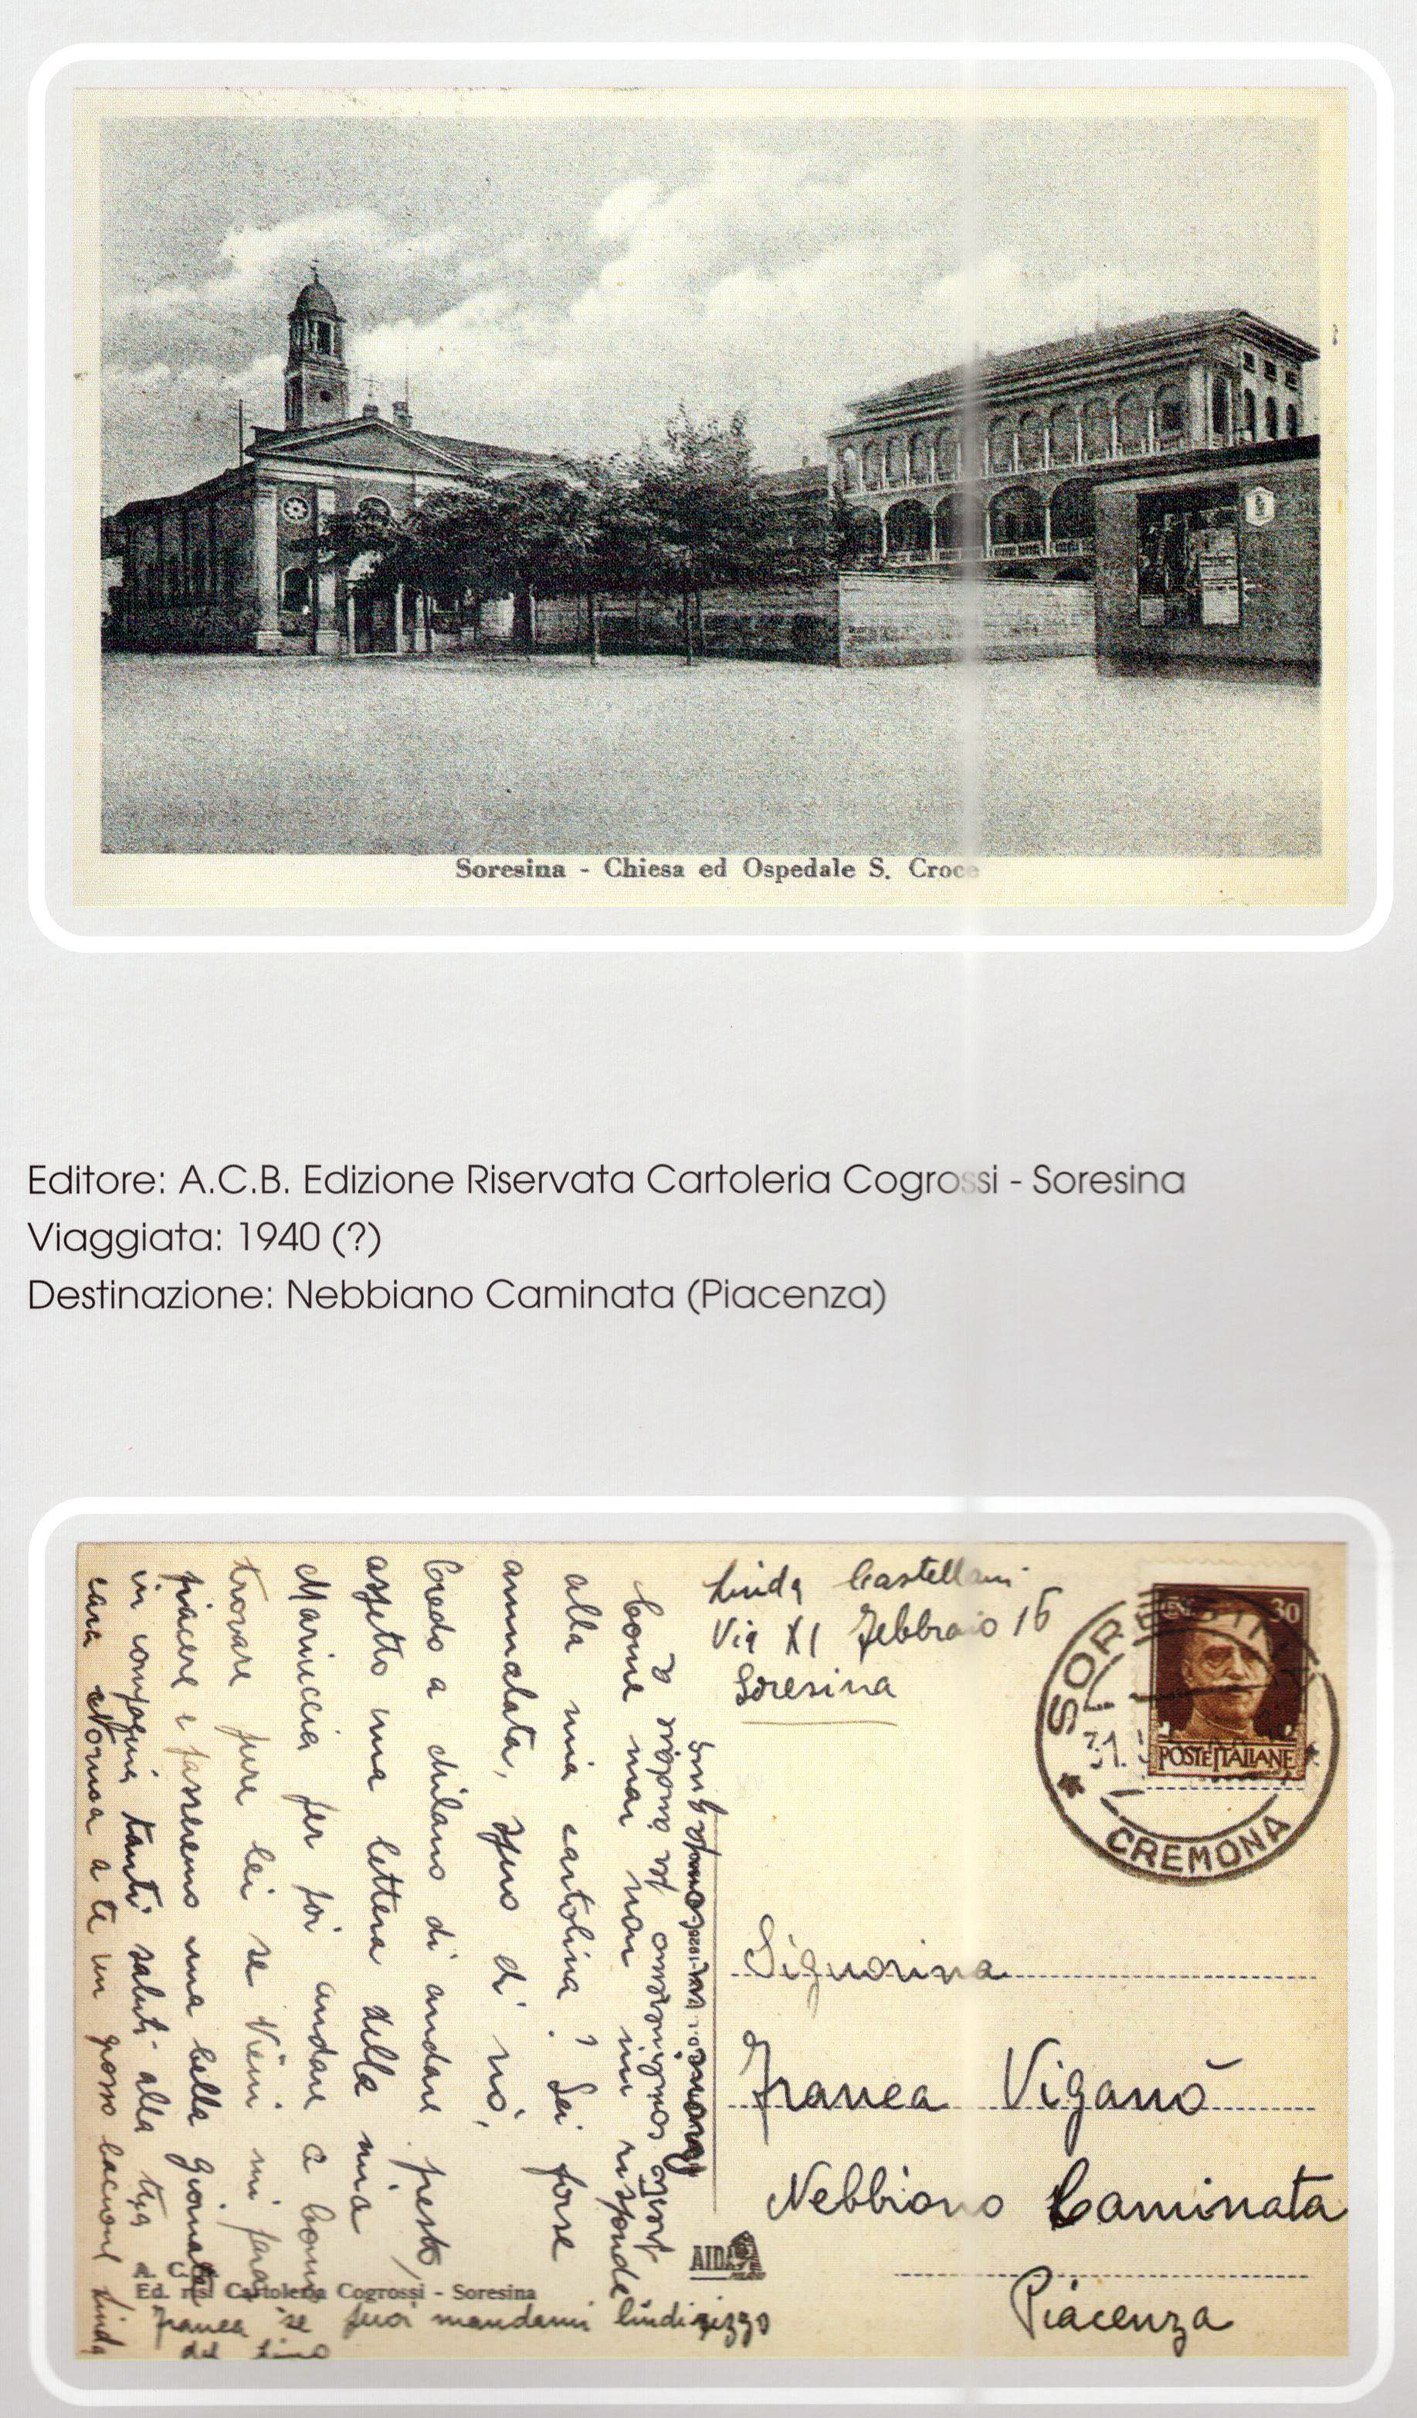 Soresina - Chiesa ed Ospedale S. Croce
Editore: A.C.B. Edizione Riservata Cartoleria Cogrossi - Soresina
Viaggiata: 1940 (?)
Destinazione: Nebbiano Caminata (Piacenza)
Linda Castellani
Via XI Febbraio 16
Soresina
SORESINA
31.
CREMONA
30
POSTE ITALIANE
Signorina
Franca Viganò
Nebbiano Caminata
Piacenza
Come mai non mi risponde
alla mia cartolina? Sei forse
ammalata, spero di nò,
Credo a Milano di andare presto,
aspetto una lettera della mia
Mariuccia per poi andare a Como
trovare pure lei se vieni mi farai
piacere e passeremo una bella giornata
in compagnia tanti saluti alla tua
cara Norma a te un grosso bacione Linda
Franca se puoi mandami lindirizzo
del Lino
A. C. B.
Ed. ris. Cartoleria Cogrossi - Soresina
AIDA